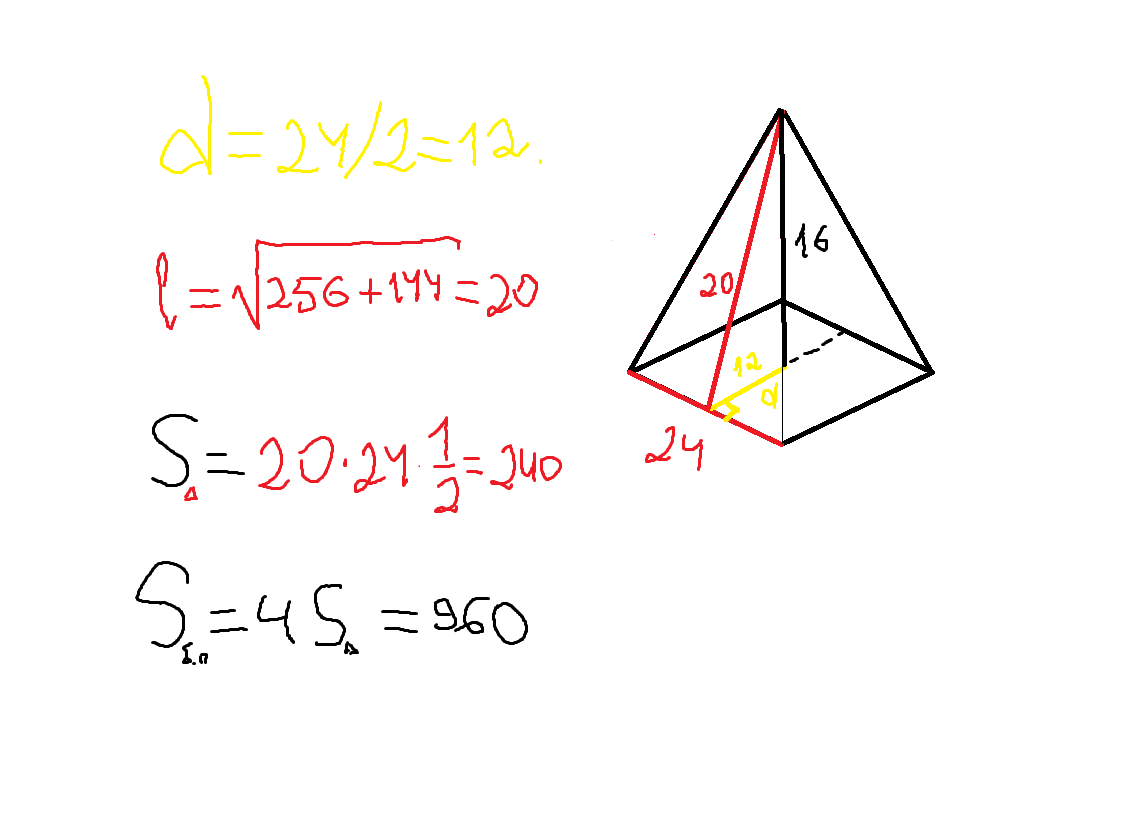 d=24/2=12.
l=√256+144=20
S△=20·24·1/2=240
Sб.п=4S△=960
16
20
12
d
24